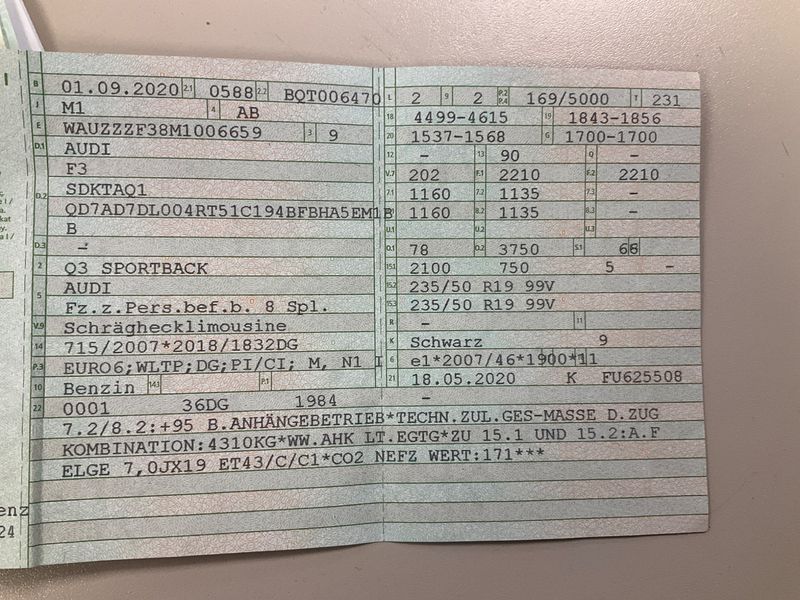 B 01.09.2020 2.1 0588 2.2 BQT006470
J M1 4 AB
E WAUZZZF38M1006659 3 9
D.1 AUDI
F3
D.2 SDKTAQ1
QD7AD7DL004RT51C194BFBHA5EM1B
B
D.3 –
2 Q3 SPORTBACK
5 AUDI
Fz.z.Pers.bef.b. 8 Spl.
V.9 Schräghecklimousine
14 715/2007*2018/1832DG
P.3 EURO6;WLTP;DG;PI/CI; M, N1 I
10 Benzin 14.1 P.1
22 0001 36DG 1984
L 2 9 2 P.2 P.4 169/5000 T 231
18 4499-4615 19 1843-1856
20 1537-1568 G 1700-1700
12 – 13 90 Q –
V.7 202 F.1 2210 F.2 2210
7.1 1160 7.2 1135 7.3 –
8.1 1160 8.2 1135 8.3 –
U.1 U.2 U.3
O.1 78 O.2 3750 S.1 66
15.1 2100 750 5 –
15.2 235/50 R19 99V
15.3 235/50 R19 99V
R – 11
K Schwarz 9
6 e1*2007/46*1900*11
21 18.05.2020 K FU625508
–
7.2/8.2:+95 B.ANHÄNGEBETRIEB*TECHN.ZUL.GES-MASSE D.ZUG
KOMBINATION:4310KG*WW.AHK LT.EGTG*ZU 15.1 UND 15.2:A.F
ELGE 7,0JX19 ET43/C/C1*CO2 NEFZ WERT:171***
enz
24